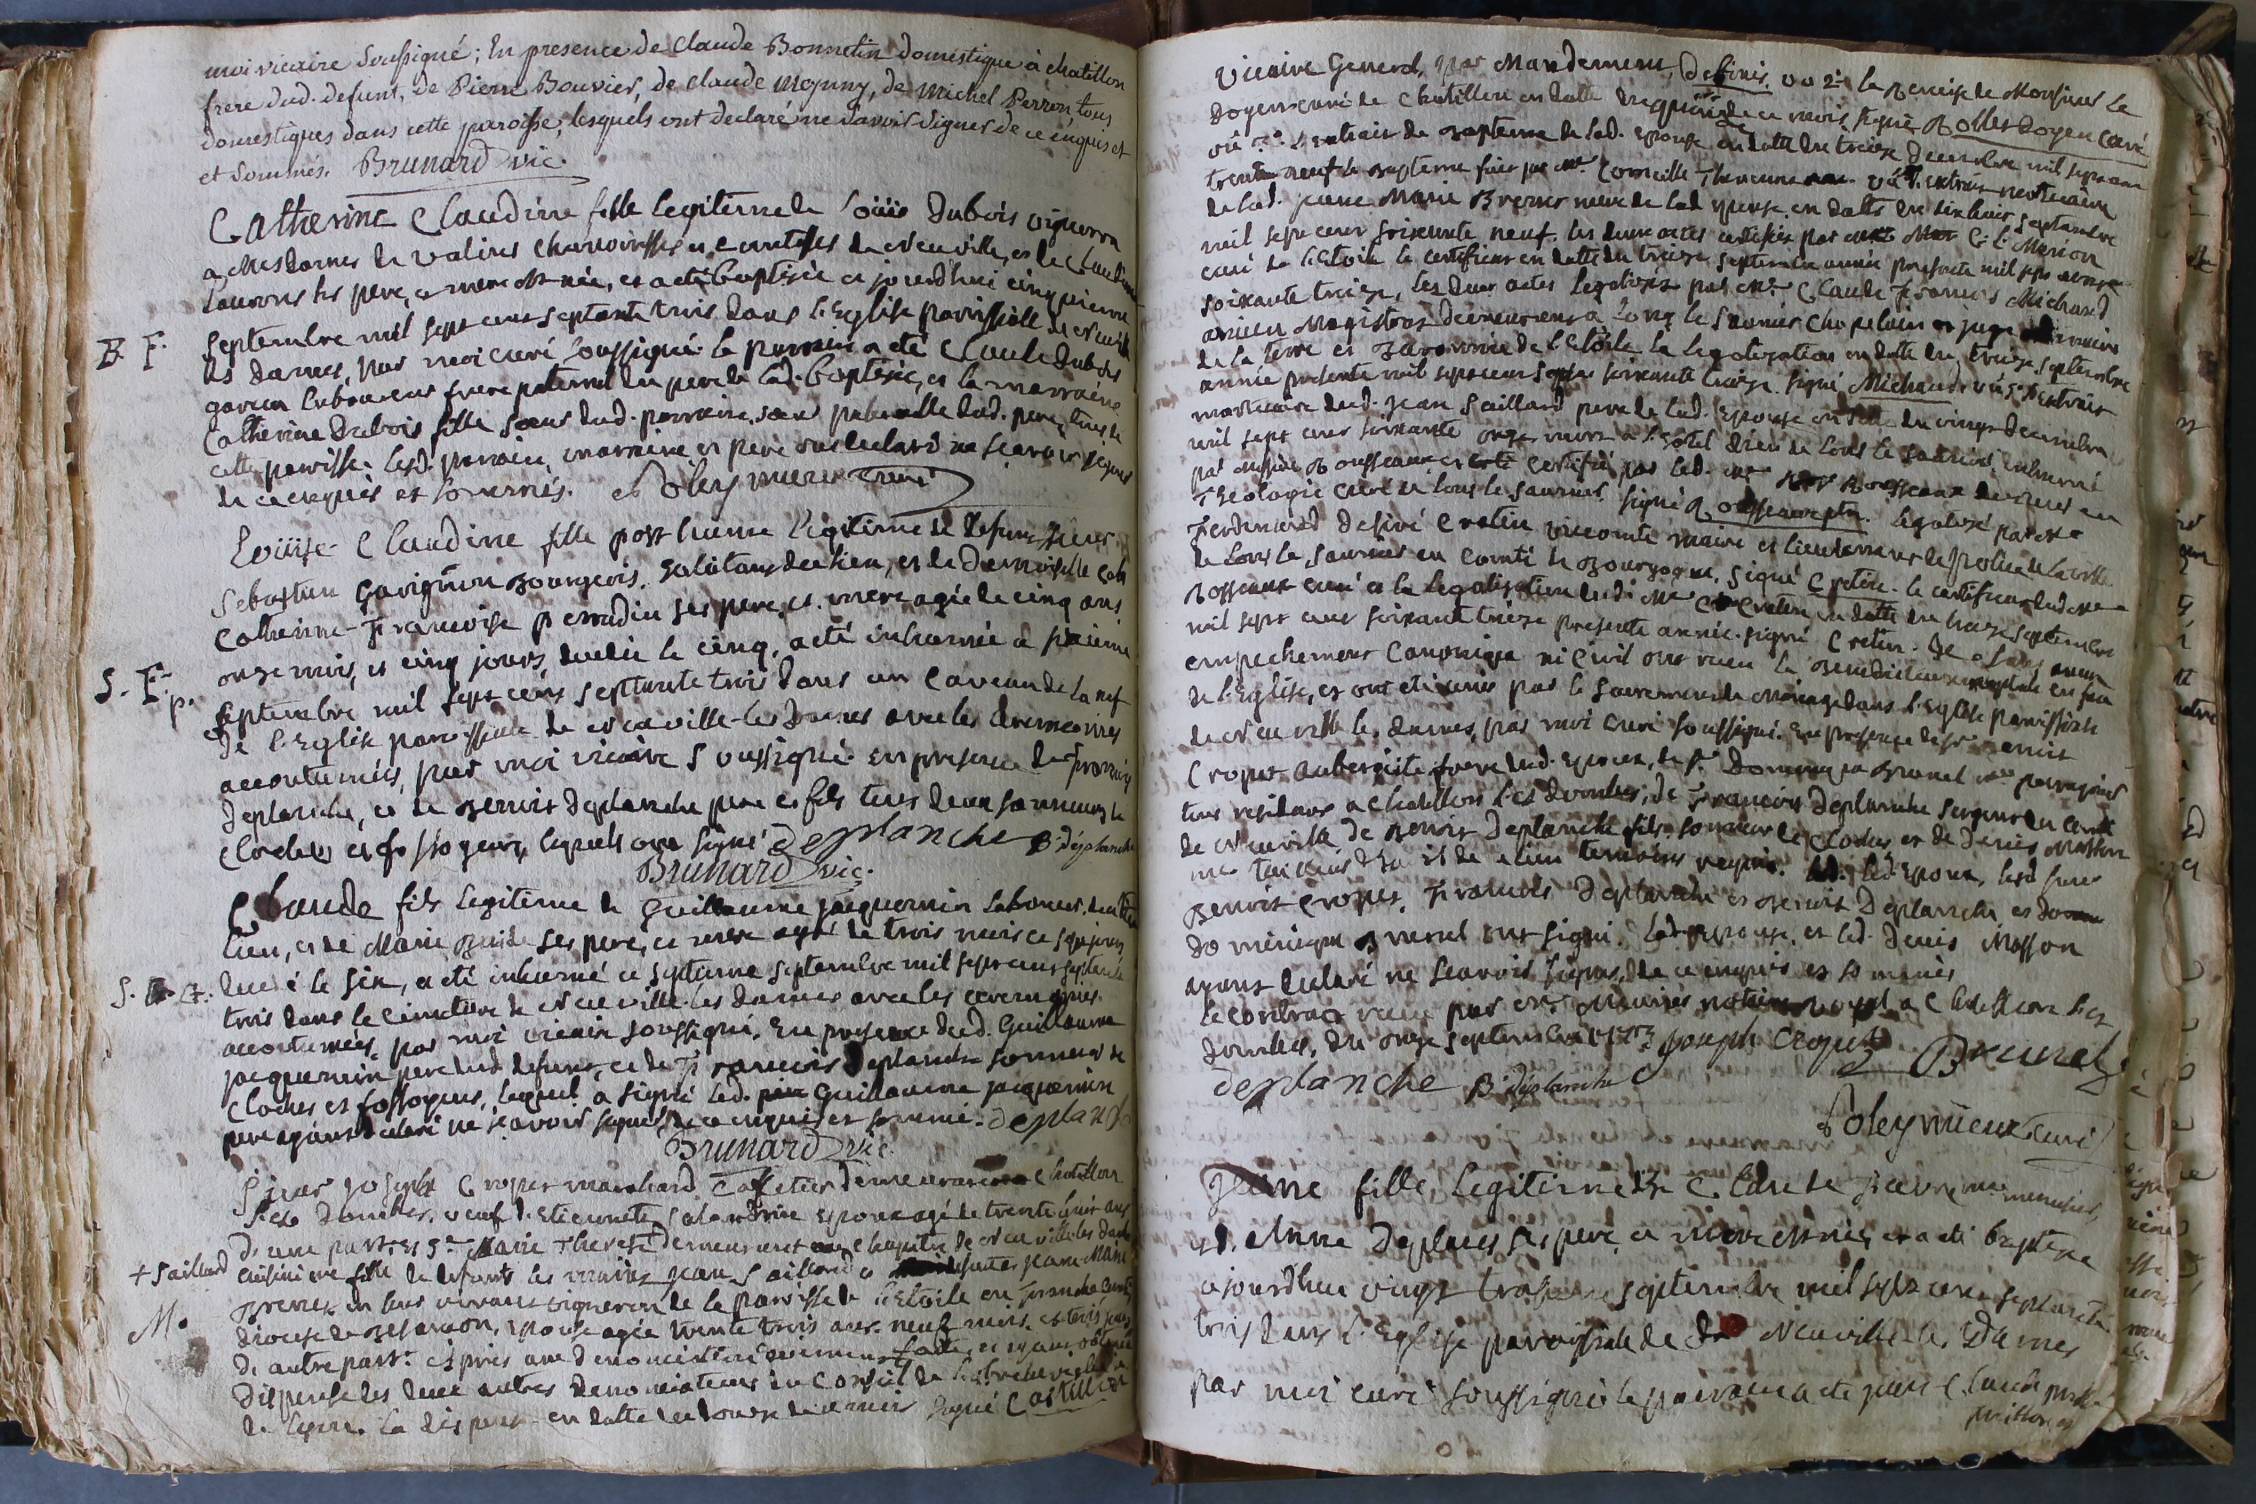 moi vicaire soussigné; En presence de Claude Bonnetin domestique à chatillon
frere dud. defunt, de Pierre Bouvier, de claude mognny, de Michel Perron, tous
domestiques dans cette paroisse, lesquels ont declaré ne savoir signer de ce enquis et
et sommés. Brunard vic.
Catherine Claudine fille legitime de Loüis Dubois vigneron
a Mesdames de valins chanoinesses et comtesses de neuville, et de Claudine
ses pere, et mere est née, et a eté baptisée ce jourdhui cinquieme
B. F. septembre mil sept cent septante trois dans l'Eglise parroissialle de neuville
les dames, par moi curé soussigné. le parrain a eté Claude Dubois
garçon laboureur frere paternel du pere de lad. baptisée, et la marraine
Catherine Dubois fille soeur dud. parrain, soeur paternelle dud. pere, tous de
cette paroisse. lesd. parrain, marraine et pere ont declaré ne sçavoir signer
de ce enquis et sommés. Soleymieux curé
Loüise Claudine fille posthume legitime de defunt sieur
Sebastien Bourgeois, habitant de ce lieu, et de Demoiselle
Catherine Françoise perradin ses pere, et mere agée de cinq ans
onze mois, et cinq jours, decedée le cinq, a eté inhumée ce sixieme
S. F. p. septembre mil sept cens septante trois dans un caveau de la nef
de l'Eglise paroissialle de neuville-les Dames avec les ceremonies
accoutumées, par moi vicaire soussigné en presence de françois
Deplanche, et de Benoit Deplanche pere et fils tous deux sonneurs de
cloches et fossoyeurs, lesquels ont signé deplanche B. déplanche
Brunard vic.
Claude fils legitime de Guillaume jacquemin laboureur, de ce
lieu, et de Marie ses pere, et mere agé de trois mois et sept jours
S. decedé le six, a eté inhumé ce septieme septembre mil sept cens septante
trois dans le cimetiere de neuville-les dames avec les ceremonies
accoutumées, par moi vicaire soussigné. En presence dud. Guillaume
jacquemin pere dud. defunt, et de françois Deplanche sonneur de
cloches et fossoyeur, lequel a signé led. Guillaume jacquemin
pere ayant declaré ne sçavoir signer de ce enquis et sommé. deplanche
Brunard vic.
Sieur joseph Cropet marchand Caffetier demeurant a Chatillon
les Dombes, veuf d'Etiennette epoux agé de trente huit ans
d'une part, et Dlle Marie Therese demeurant au chapitre de neuville les dames
+ Saillard cuisiniere fille de defunts les mariés jean Saillard et jeane Marie
Brenet en leur vivant vigneron de la paroisse de l'Etoile en franche comté,
M. diocese de Besançon, epouse agée trente trois ans. neuf mois. et trois jours
d'autre part. après une denonciation faite, et ayant obtenu
Dispense des deux autres denonciations du Conseil de l'archeveché
de Lyon. la dispense en datte du douze de ce mois signé Castillon
Vicaire General, par Mandement, Debinis. vu 2° la remise de Monsieur le
Doyen curé de Chatillon en datte du de ce mois signé Rolles Doyen Curé
vû 3° l'extrait de baptême de lad. epouse en datte du treize Decembre mil sept cent
trente neuf le baptême fait par Mre Corneille Thevenin vû 4° l'extrait mortuaire
de lad. jeane Marie Brenet mere de lad. epouse en datte du dix huit septembre
mil sept cens soixante neuf. les deux actes certifiés par Mre C. L. Marion
curé de l'Etoile le certificat en datte du treize septembre année presente mil sept cens
soixante treize, les deux actes legalisés par Mre Claude François Michaud
ancien Magistrat demeurant a Long le Saunier Chatelain et juge
de la terre et Baronnie de l'Etoile la legalisation en datte du treize septembre
année presente mil sept cens soixante treize. signé Michaud. vû 5° l'extrait
mortuaire dud. jean Saillard pere de lad. Epouse en datte du vingt Decembre
mil sept cens soixante onze mort a l'hotel Dieu de Lons le Saunier, inhumé
par messire Rousseaux et certifié par led. Mre Rousseaux docteur en
Theologie curé de Lons le Saunier. signé Rousseaux ptre. legalisé par Mre
Ferdinand Desiré Cretin vicomte maire et lieutenant de police de la ville
de Lons le Saunier en Comté de Bourgogne. signé Cretin. le certificat dud. Mre
Rosseaux curé et la legalisation dud. Mre Cretin en datte du treize septembre
mil sept cens soixante treize presente année. signé Cretin. sans aucun
empechement Canonique ni Civil ont reçu la benediction nuptiale en face
de l'Eglise, et ont eté unis par le sacrement de mariage dans l'Eglise paroissiale
de neuville les dames, par moi curé soussigné. En presence de sr Benoit
Cropet Aubergiste frere dud. Epoux, de sr Dominique Brunel me perruquier
tous residans a Chatillon les dombes, de François Deplanche sergent du comté
de neuville, de Benoit Deplanche fils sonneur de Cloches et de Denis Masson
me tailleur d'habit de ce lieu temoins requis. led. Epoux, lesd. sieurs
Benoit Cropet, François Deplanche et Benoit Deplanche et
Dominique Brunel ont signé. lad. epouse. et led. Denis Masson
ayant declaré ne sçavoir signer, de ce enquis et sommés
le contract reçu par Mre notaire royal a Chatillon les
dombes, du onze septembre 1773 joseph cropet
deplanche B. déplanche Brunel
Soleymieux curé
Jeanne fille legitime de Claude me menuisier,
et d'Anne Deplaces ses pere et mere est née, et a eté baptisée
cejourdhui vingt trois septembre mil sept cens septante
trois dans l'Eglise paroissiale de Neuville-les Dames
par moi curé soussigné le parrain a eté jean Claude